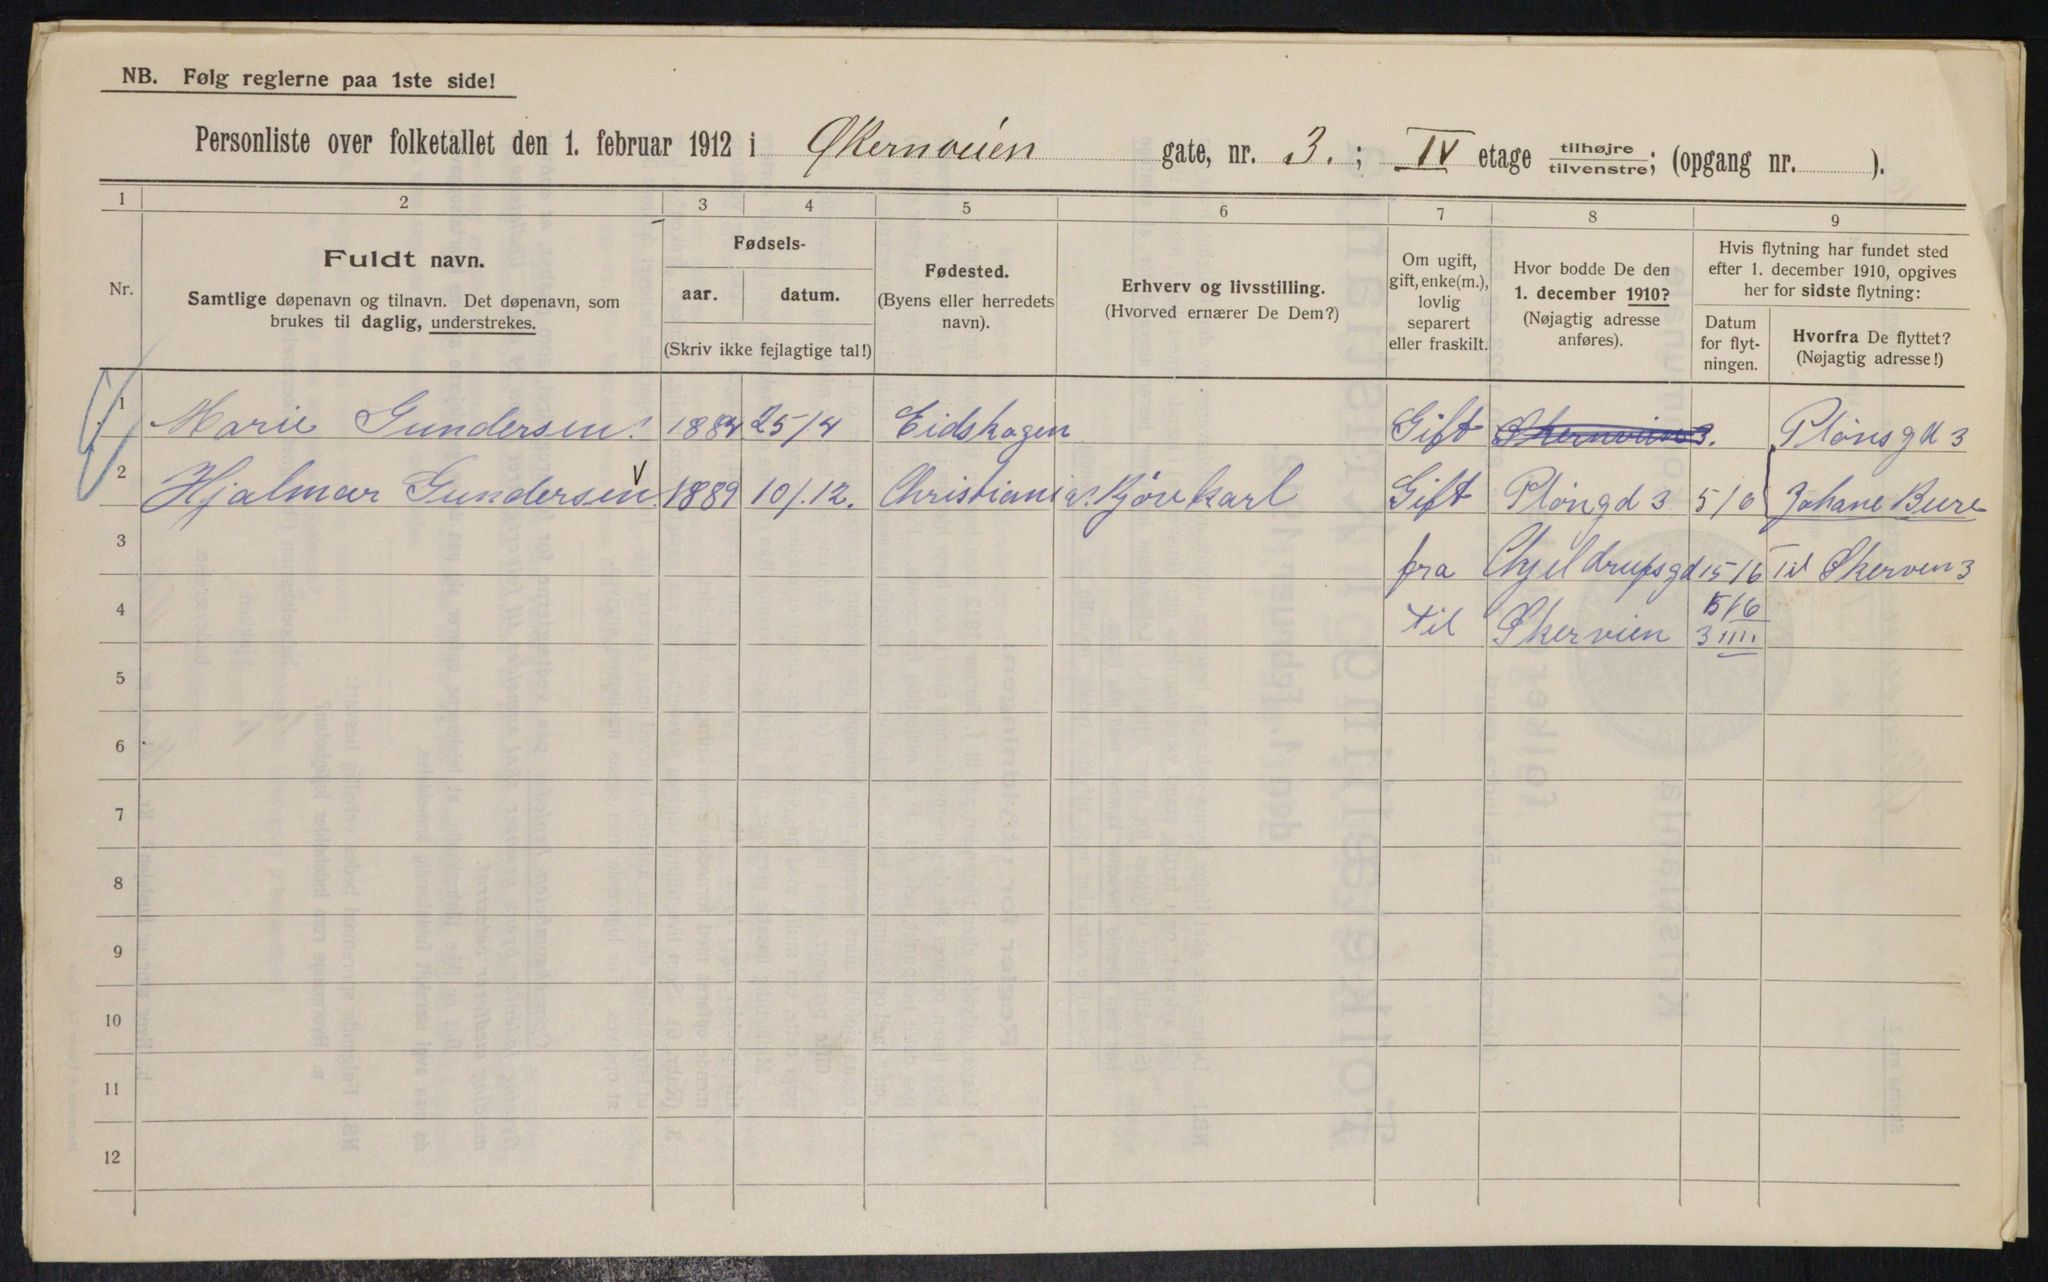 NB. Følg reglerne paa 1ste side!
Personliste over folketallet den 1. februar 1912 i Økernveien gate, nr. 3. ; IV etage tilhøjre/tilvenstre; (opgang nr. ).
1 2 3 4 5 6 7 8 9
Nr.
Fuldt navn.
Samtlige døpenavn og tilnavn. Det døpenavn, som
brukes til daglig, understrekes.
Fødsels-
aar. datum.
(Skriv ikke fejlagtige tal!)
Fødested.
(Byens eller herredets
navn).
Erhverv og livsstilling.
(Hvorved ernærer De Dem?)
Om ugift,
gift, enke(m.),
lovlig
separert
eller fraskilt.
Hvor bodde De den
1. december 1910?
(Nøjagtig adresse
anføres).
Hvis flytning har fundet sted
efter 1. december 1910, opgives
her for sidste flytning:
Datum
for flyt-
ningen.
Hvorfra De flyttet?
(Nøjagtig adresse!)
1 Marie Gundersen. 1884 25/4 Eidskogen Gift Økernveien 3. Plønsgd 3
2 Hjalmar Gundersen. 1889 10/.12. Christiania. Kjørekarl Gift Pløngd 3 5/6 Johane Bure
3 fra 15/6 til Økerven 3
4 til Økervien 3 15/6
5
6
7
8
9
10
11
12